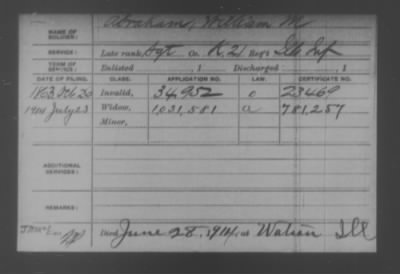 NAME OF SOLDIER: Abraham, William M.
SERVICE: Late rank, Sgt Co. K, 21 Reg't Ill Inf
TERM OF SERVICE: Enlisted , 1 Discharged , 1
DATE OF FILING. CLASS. APPLICATION NO. LAW. CERTIFICATE NO.
1863 Feb 20 Invalid, 34,952 o 23469
1914 July 23 Widow, 1,031,581 a 781,257
Minor,
ADDITIONAL SERVICES:
REMARKS:
Died June 28, 1914, at Watson Ill